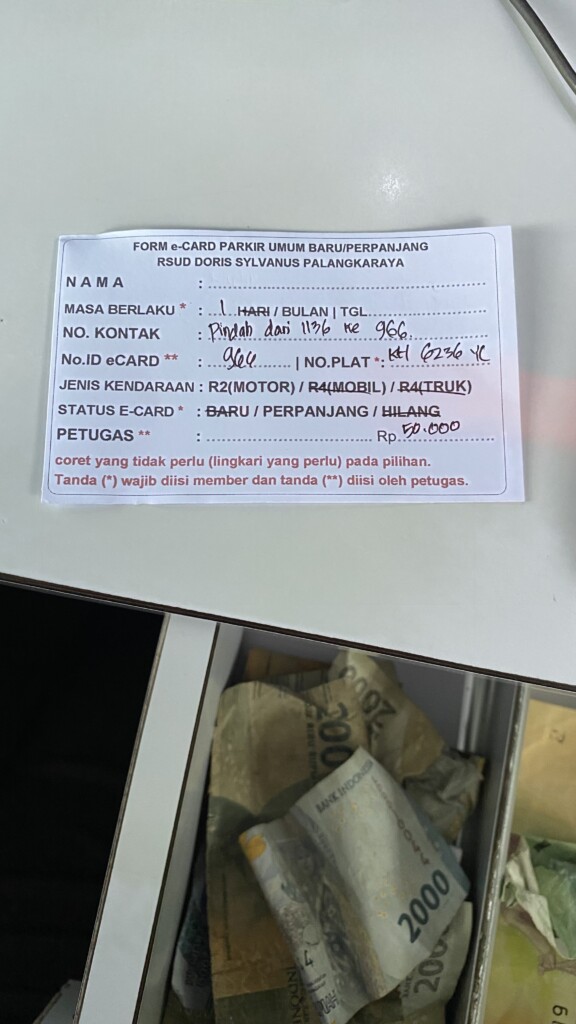 FORM e-CARD PARKIR UMUM BARU/PERPANJANG
RSUD DORIS SYLVANUS PALANGKARAYA
NAMA :
MASA BERLAKU * : 1 HARI / BULAN | TGL.
NO. KONTAK : Pindah dari 1136 ke 966.
No.ID eCARD ** : 966 | NO.PLAT *: KH 6236 YC
JENIS KENDARAAN : R2(MOTOR) / R4(MOBIL) / R4(TRUK)
STATUS E-CARD * : BARU / PERPANJANG / HILANG
PETUGAS ** : Rp. 50.000
coret yang tidak perlu (lingkari yang perlu) pada pilihan.
Tanda (*) wajib diisi member dan tanda (**) diisi oleh petugas.
2000
BANK INDONESIA
2000